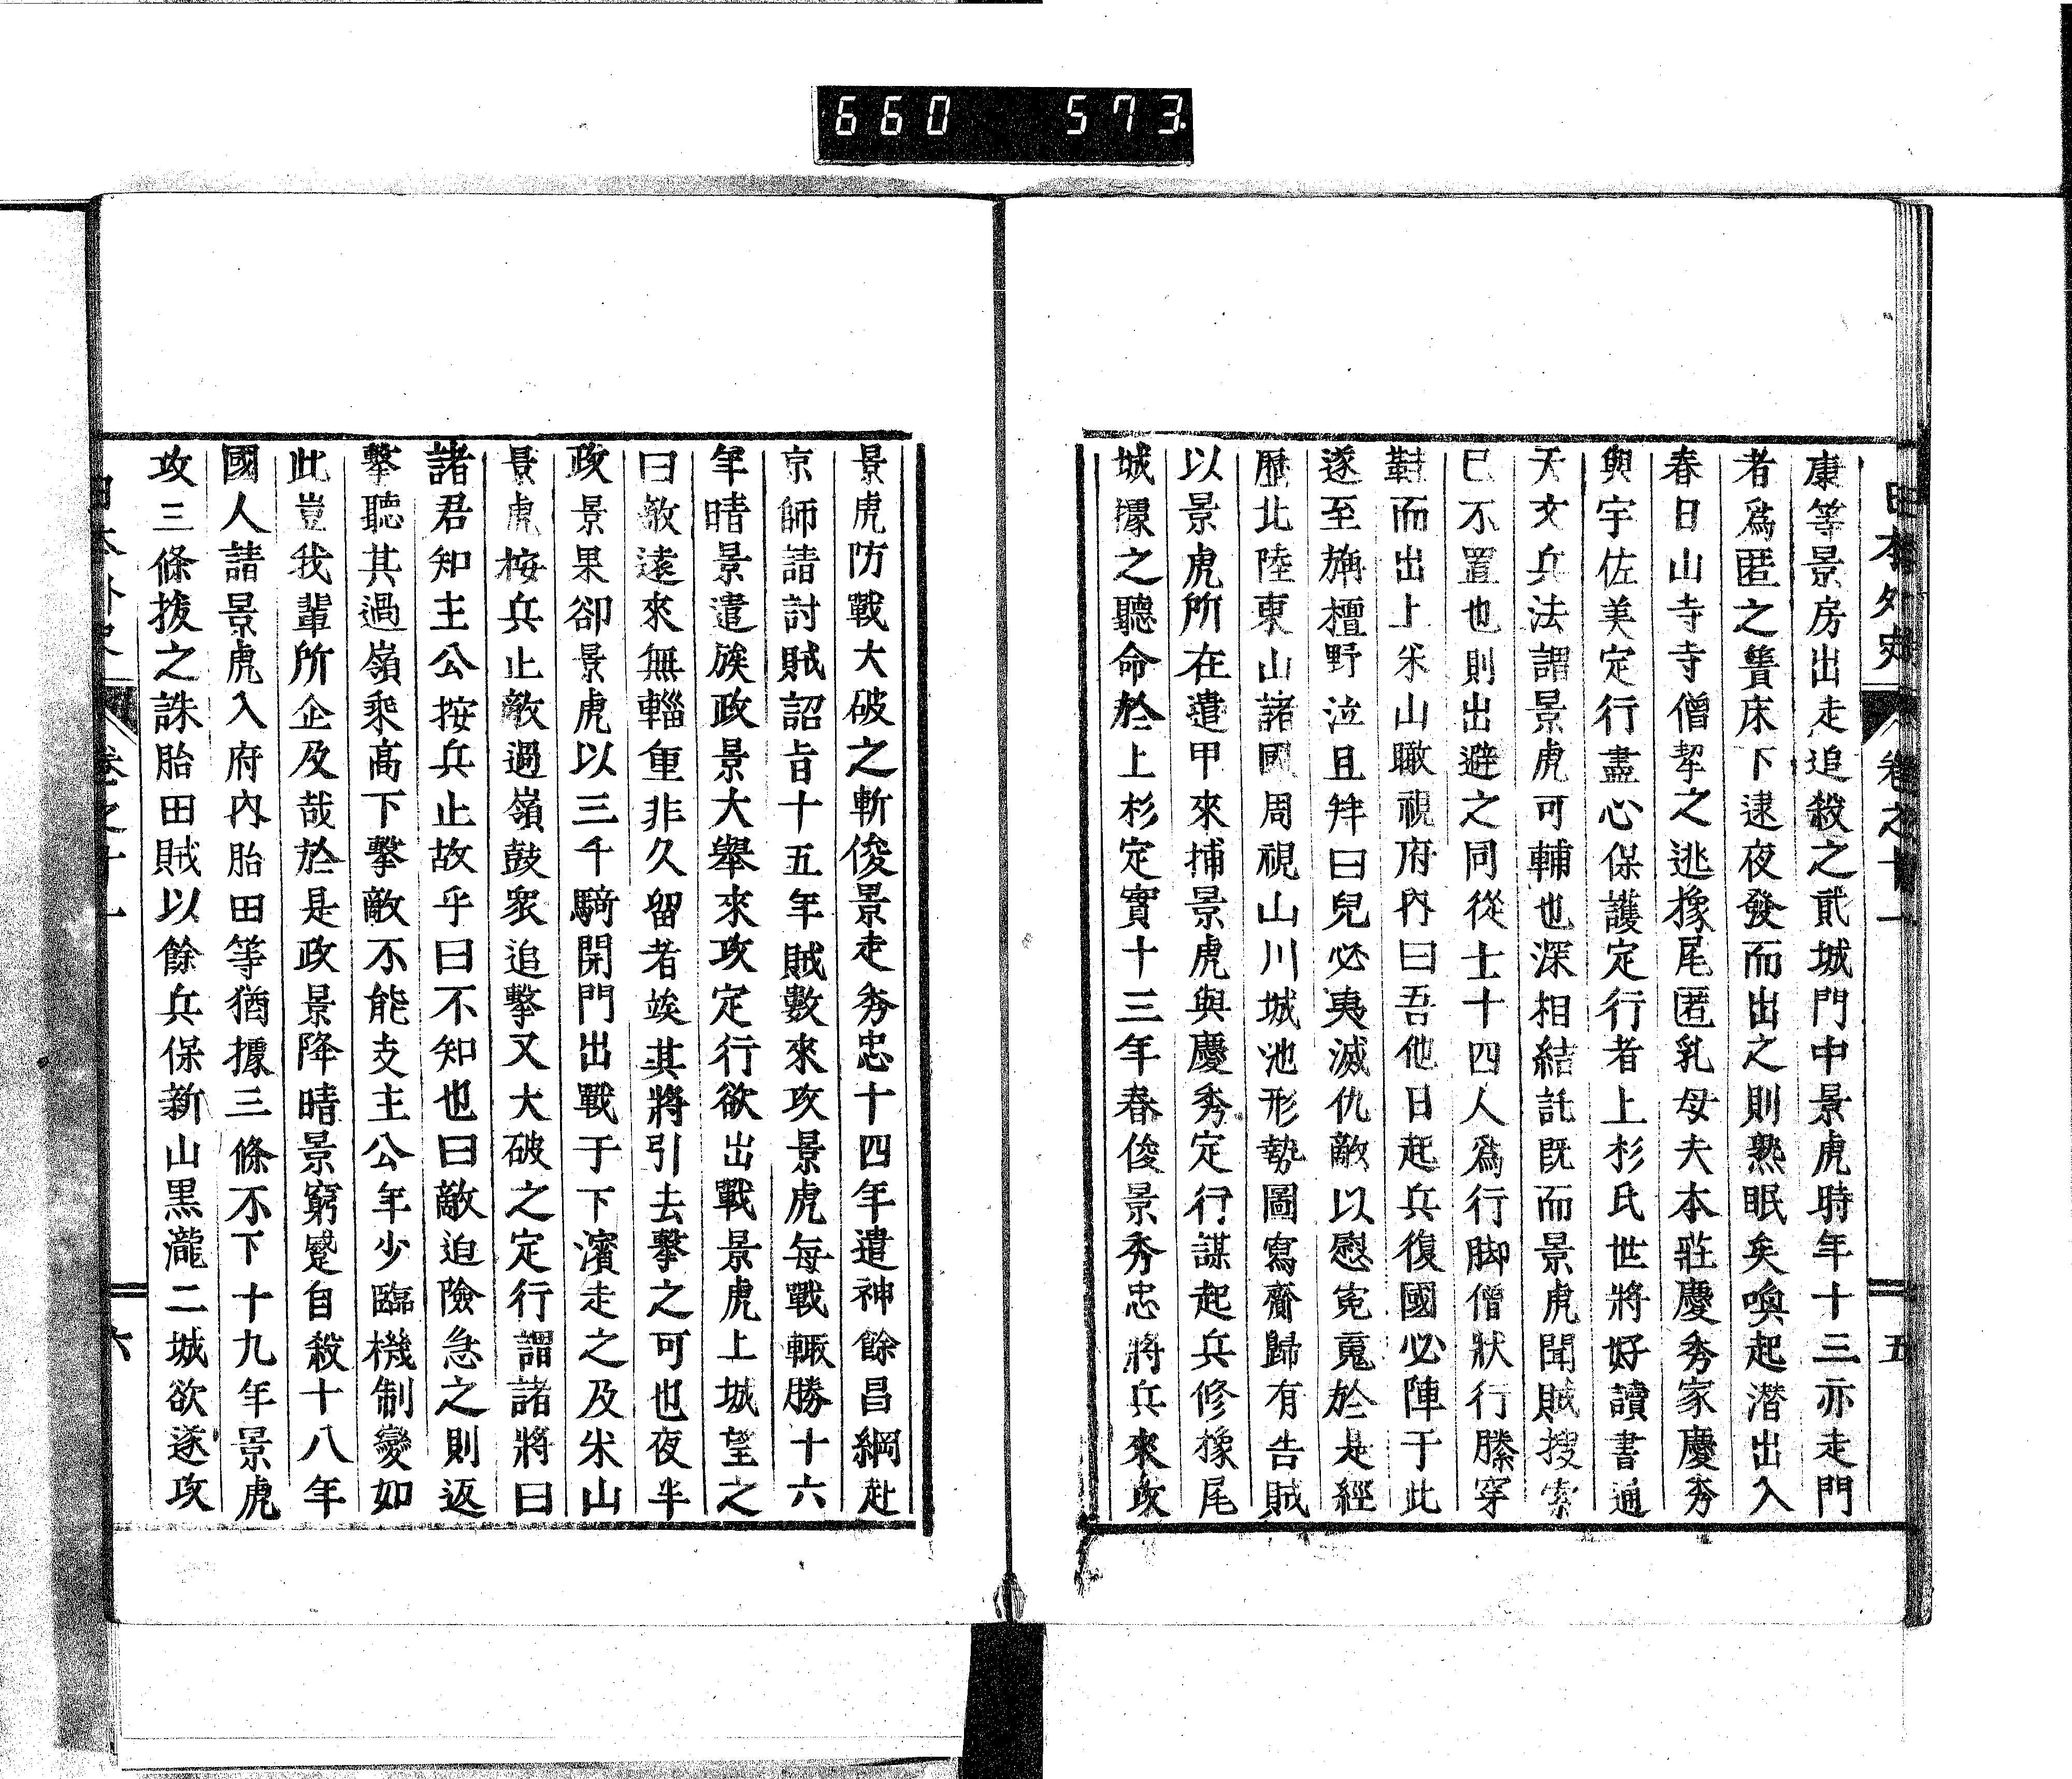 660 573.
日本外史 卷之十一 五
康等景房出走追殺之貳城門中景虎時年十三亦走門
者爲匿之簀床下逮夜發而出之則熟眠矣喚起潛出入
春日山寺寺僧挈之逃橡尾匿乳母夫本莊慶秀家慶秀
與宇佐美定行盡心保護定行者上杉氏世將好讀書通
天文兵法謂景虎可輔也深相結託既而景虎聞賊搜索
已不置也則出避之同從士十四人爲行脚僧狀行縢穿
鞋而出上米山瞰視府內曰吾他日起兵復國必陣于此
遂至旃檀野泣且拜曰兒必夷滅仇敵以慰冤魂於是經
歷北陸東山諸國周視山川城池形勢圖寫齎歸有告賊
以景虎所在遣甲來捕景虎與慶秀定行謀起兵修橡尾
城據之聽命於上杉定實十三年春俊景秀忠將兵來攻
景虎防戰大破之斬俊景走秀忠十四年遣神餘昌綱赴
京師請討賊詔旨十五年賊數來攻景虎每戰輒勝十六
年晴景遣族政景大舉來攻定行欲出戰景虎上城望之
曰敵遠來無輜重非久留者竢其將引去擊之可也夜半
政景果卻景虎以三千騎開門出戰于下濱走之及米山
景虎按兵止敵過嶺鼓衆追擊又大破之定行謂諸將曰
諸君知主公按兵止故乎曰不知也曰敵迫險急之則返
擊聽其過嶺乘高下擊敵不能支主公年少臨機制變如
此豈我輩所企及哉於是政景降晴景窮蹙自殺十八年
國人請景虎入府內胎田等猶據三條不下十九年景虎
攻三條拔之誅胎田賊以餘兵保新山黑瀧二城欲遂攻
日本外史 卷之十一 六